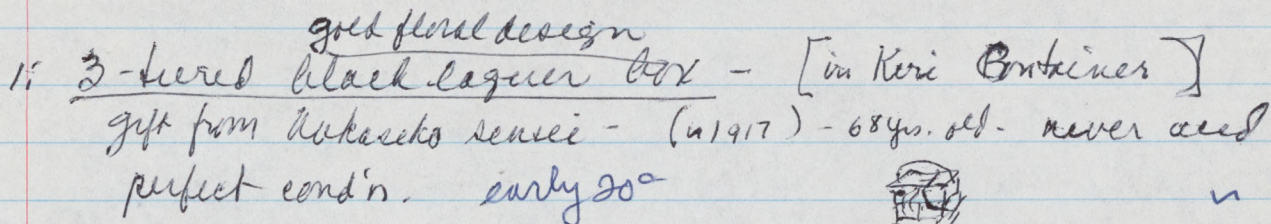 gold floral design
1. 3-tiered black laquer box - [in Kiri Container]
gift from sensei - (n 1917) - 68 yrs. old - never used
perfect cond'n. early 20c